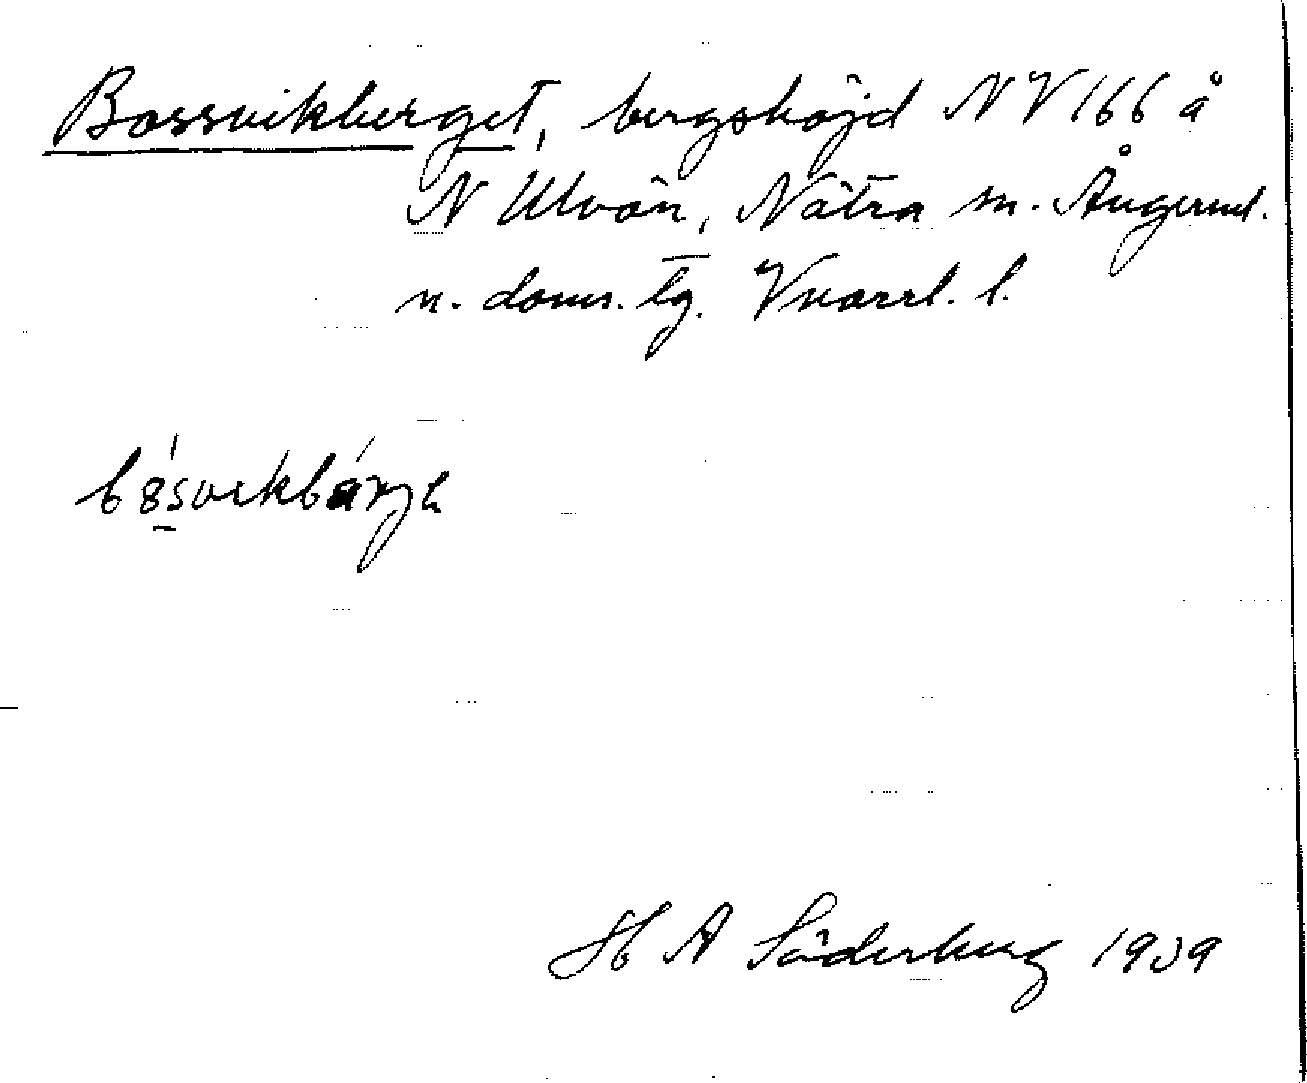 Bossvikberget, bergshöjd NV 166 å
N Ulvön, Nätra sn. Ångerml.
n. doms. tg. Vnorrl. l.
H A Söderberg 1939